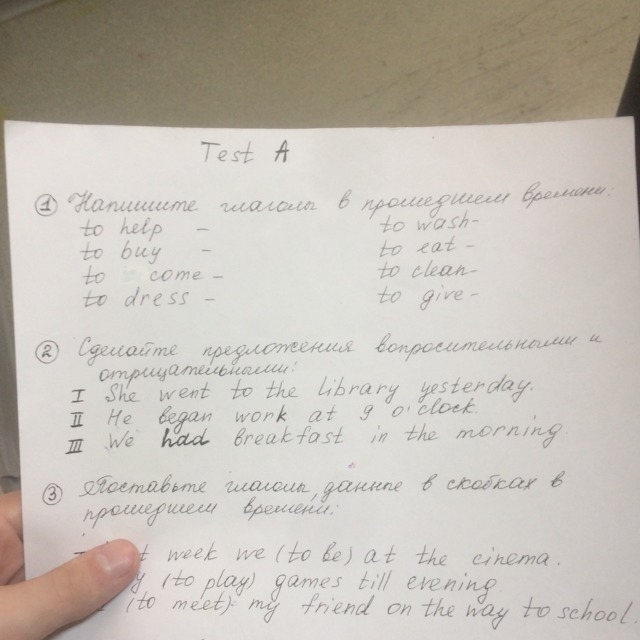 Test A
① Напишите глаголы в прошедшем времени:
to help – to wash-
to buy – to eat -
to come – to clean-
to dress – to give-
② Сделайте предложения вопросительными и
отрицательными:
I She went to the library yesterday.
II He began work at 9 o'clock.
III We had breakfast in the morning.
③ Поставьте глаголы, данные в скобках в
прошедшем времени:
week we (to be) at the cinema.
(to play) games till evening.
(to meet) my friend on the way to school.